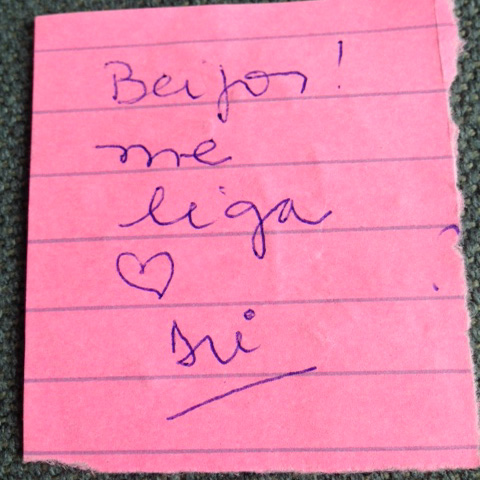 Beijos!
me
liga
♡
Dri